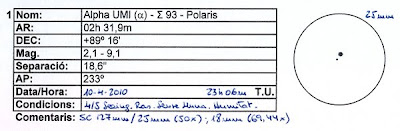 1 Nom: Alpha UMI (α) - Σ 93 - Polaris
25mm
AR: 02h 31,9m
DEC: +89º 16'
Mag. 2,1 - 9,1
Separació: 18,6"
AP: 233º
Data/Hora: 10-4-2010 23h06m T.U.
Condicions: 4/5 Seeing. Ras. Sense lluna. Humitat.
Comentaris: SC 127mm/25mm (50x); 18mm (69,44x)